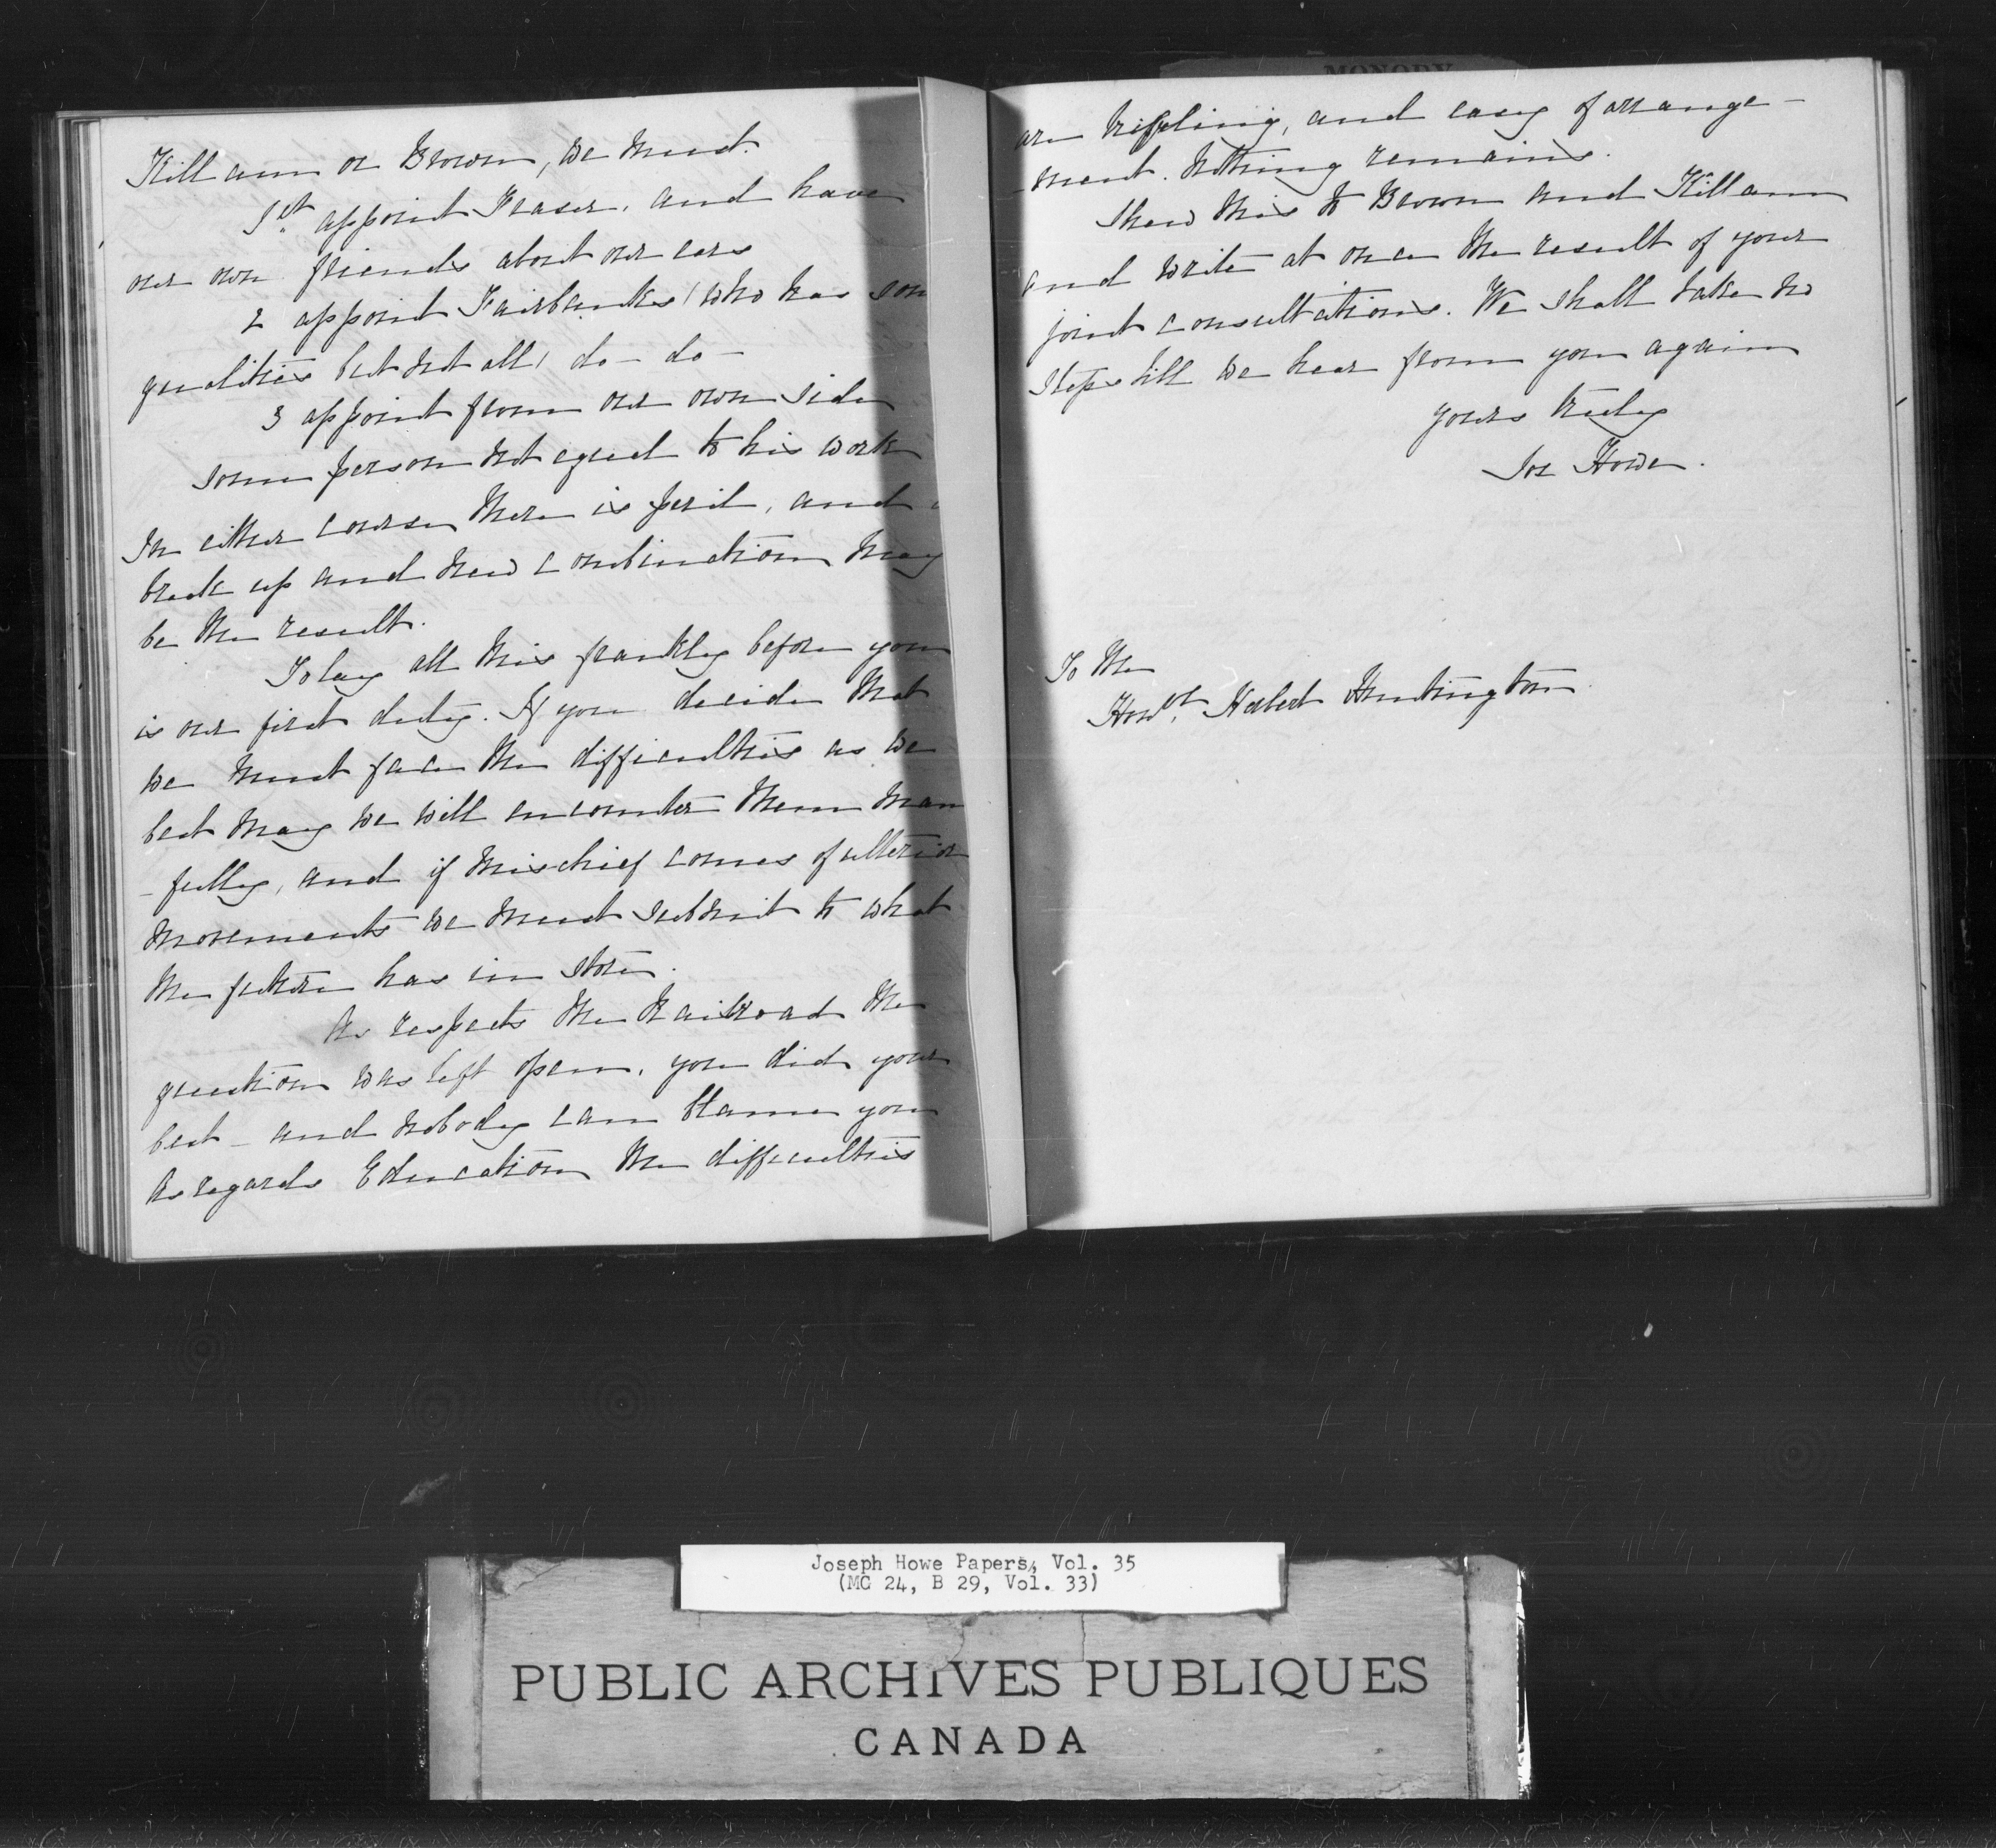 Killam or Brown, we must.
1st appoint Fraser, and have
our own friends about our ears
2 appoint Fairbanks (who has som
qualities but not all) do - do -
3 appoint from our own side
some person not equal to his work
In either course there is peril, and a
break up and new combination may
be the result.
To lay all this frankly before you
is our first duty. If you decide that
we must face the difficulties as we
best may we will encounter them man
-fully, and if mischief comes of ulterior
movements we must submit to what
the future has in store.
As respects the Railroad the
question was left open, you did your
best - and nobody can blame you
As regards Education the difficulties
are trifling, and easy of arrange-
-ment. Nothing remains.
Shew this to Brown and Killam
and write at once the result of your
joint consultations. We shall take no
steps till we hear from you again
yours truly
Jos Howe.
To the
Honbl. Herbert Huntington.
Joseph Howe Papers, Vol. 35
(MG 24, B 29, Vol. 33)
PUBLIC ARCHIVES PUBLIQUES
CANADA